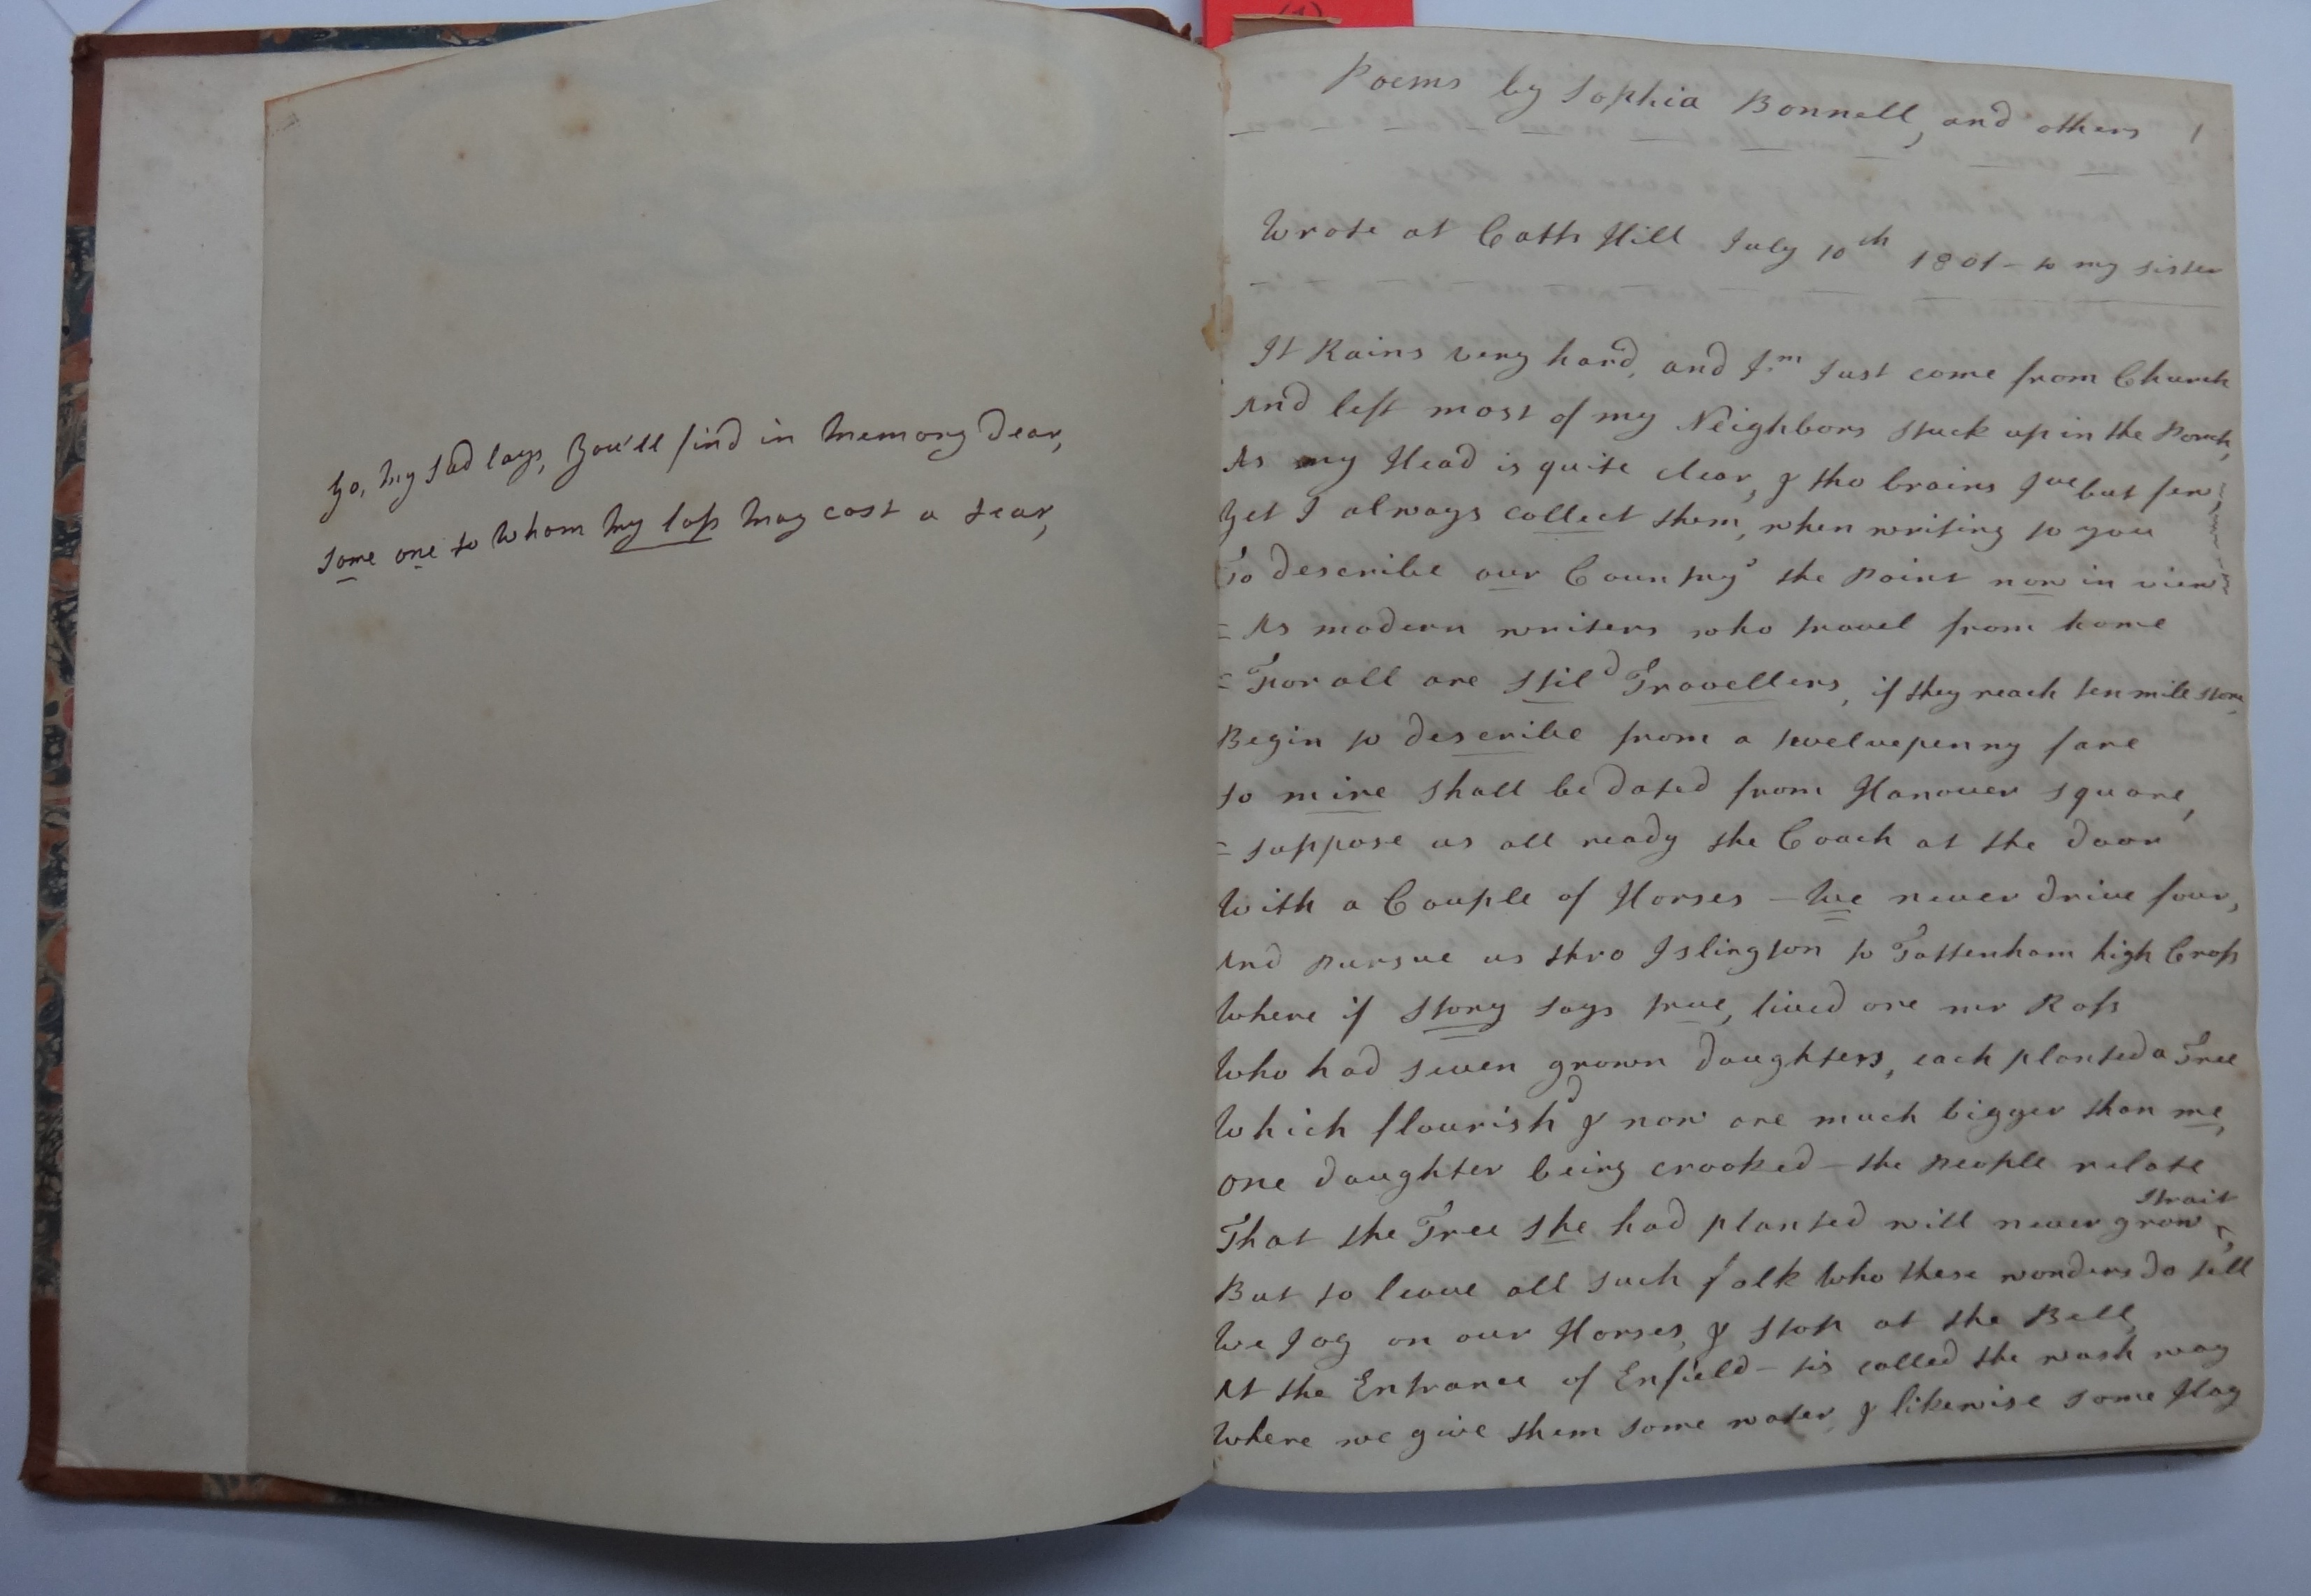 Go, my sad lays, You'll find in memory dear,
Some one to whom my loss may cost a tear,
(1)
Poems by Sophia Bonnell, and others 1
Wrote at Catts Hill July 10th 1801 - to my sister
It Rains very hard, and I'm Just come from Church
And left most of my Neighbors stuck up in the Porch,
As my Head is quite clear, & tho brains I've but few
Yet I always collect them, when writing to you
To describe our Country's the Point now in view
= As modern writers who travel from home
= For all are stil'd Travellers, if they reach ten mile stone,
Begin to describe from a twelvepenny fare
So mine shall be dated from Hanover Square,
= Suppose us all ready the Coach at the door
With a Couple of Horses - We never drive four,
And pursue us thro Islington to Tottenham high Cross
Where if story says true, lived one mr Ross
Who had seven grown daughters, each planted a Tree
Which flourish'd & now are much bigger than me,
One daughter being crooked - the People relate
That the Tree she had planted will never grow strait,
But to leave all such folk who these wonders do tell
We Jog on our Horses, & stop at the Bell,
At the Entrance of Enfield - tis called the wash way
Where we give them some water, & likewise some Hay